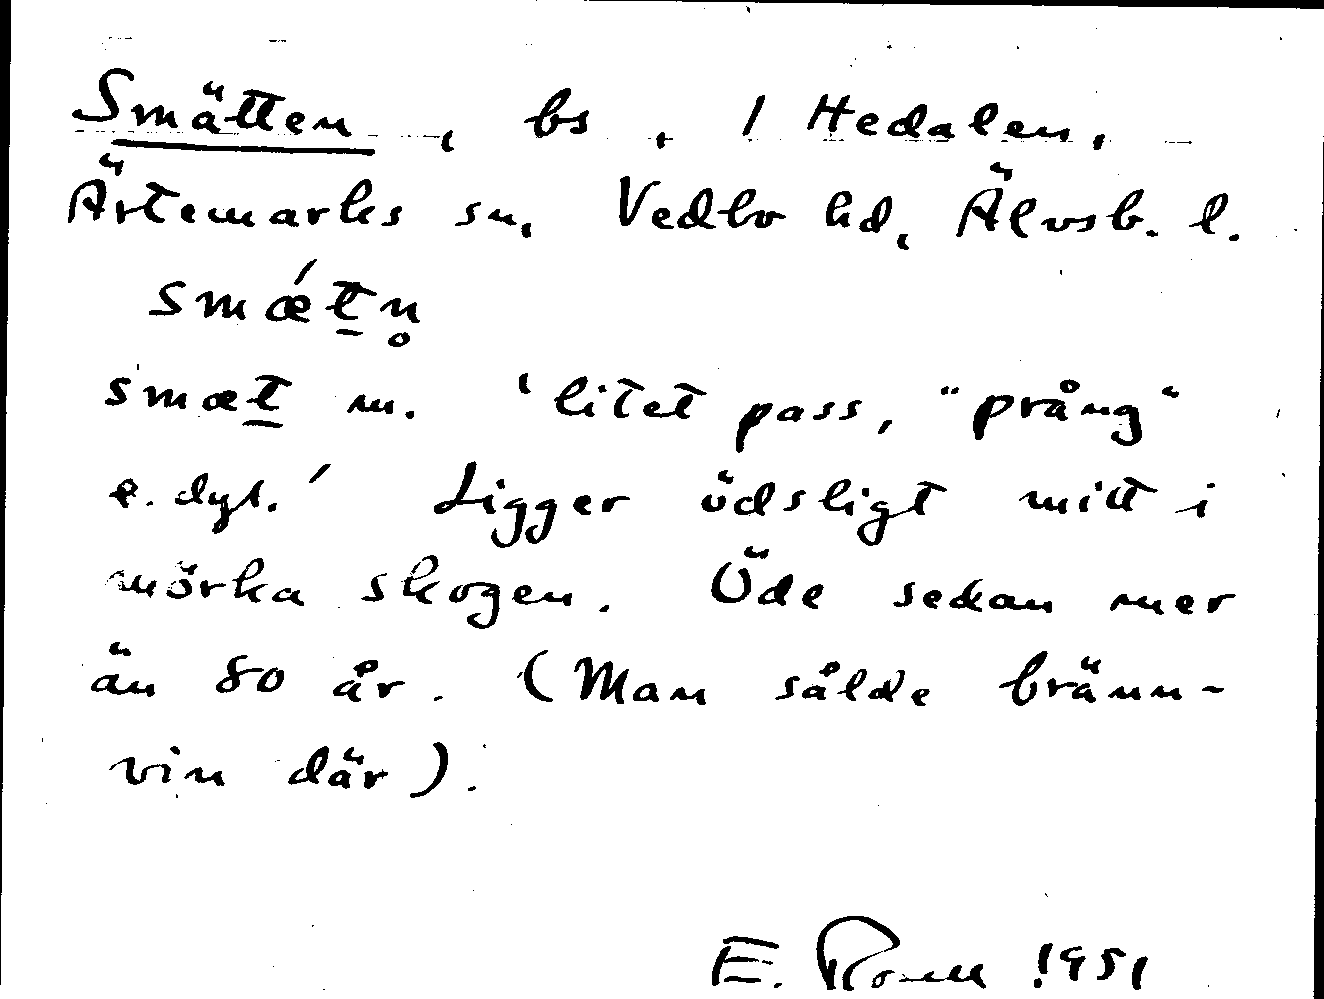 Smätten, bs, 1 Hedalen,
Ärtemarks sn, Vedbo hd, Älvsb. l.
smǽt̲n̥
smæt̲ m. 'litet pass, "prång"
e. dyl.' Ligger ödsligt mitt i
mörka skogen. Öde sedan mer
än 80 år. (Man sålde bränn-
vin där).
E. 1951